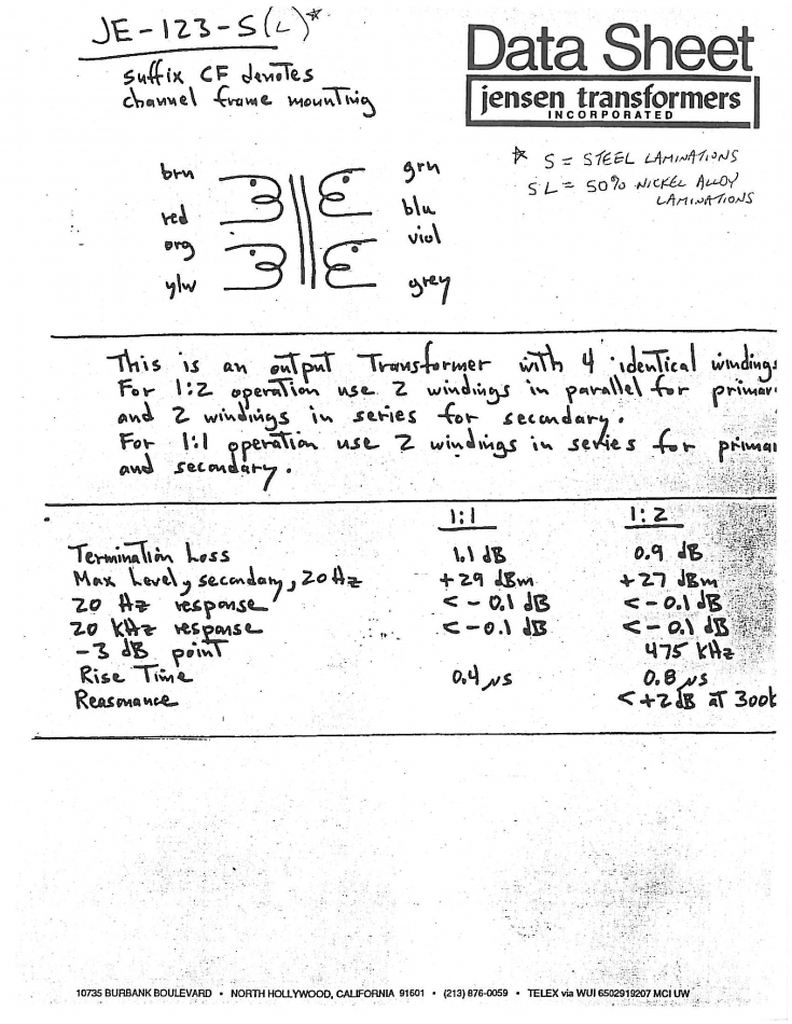 JE-123-S(L)*
suffix CF denotes
channel frame mounting
Data Sheet
jensen transformers
INCORPORATED
* S = STEEL LAMINATIONS
SL = 50% NICKEL ALLOY
LAMINATIONS
brn grn
red blu
org viol
ylw grey
This is an output Transformer with 4 identical windings
For 1:2 operation use 2 windings in parallel for primar
and 2 windings in series for secondary.
For 1:1 operation use 2 windings in series for primar
and secondary.
1:1 1:2
Termination Loss 1.1 dB 0.9 dB
Max Level, secondary, 20 Hz +29 dBm +27 dBm
20 Hz response <-0.1 dB <-0.1 dB
20 KHz response <-0.1 dB <-0.1 dB
-3 dB point 475 KHz
Rise Time 0.4 µs 0.8 µs
Reasonance <+2dB at 300k
10735 BURBANK BOULEVARD • NORTH HOLLYWOOD, CALIFORNIA 91601 • (213) 876-0059 • TELEX via WUI 6502919207 MCI UW